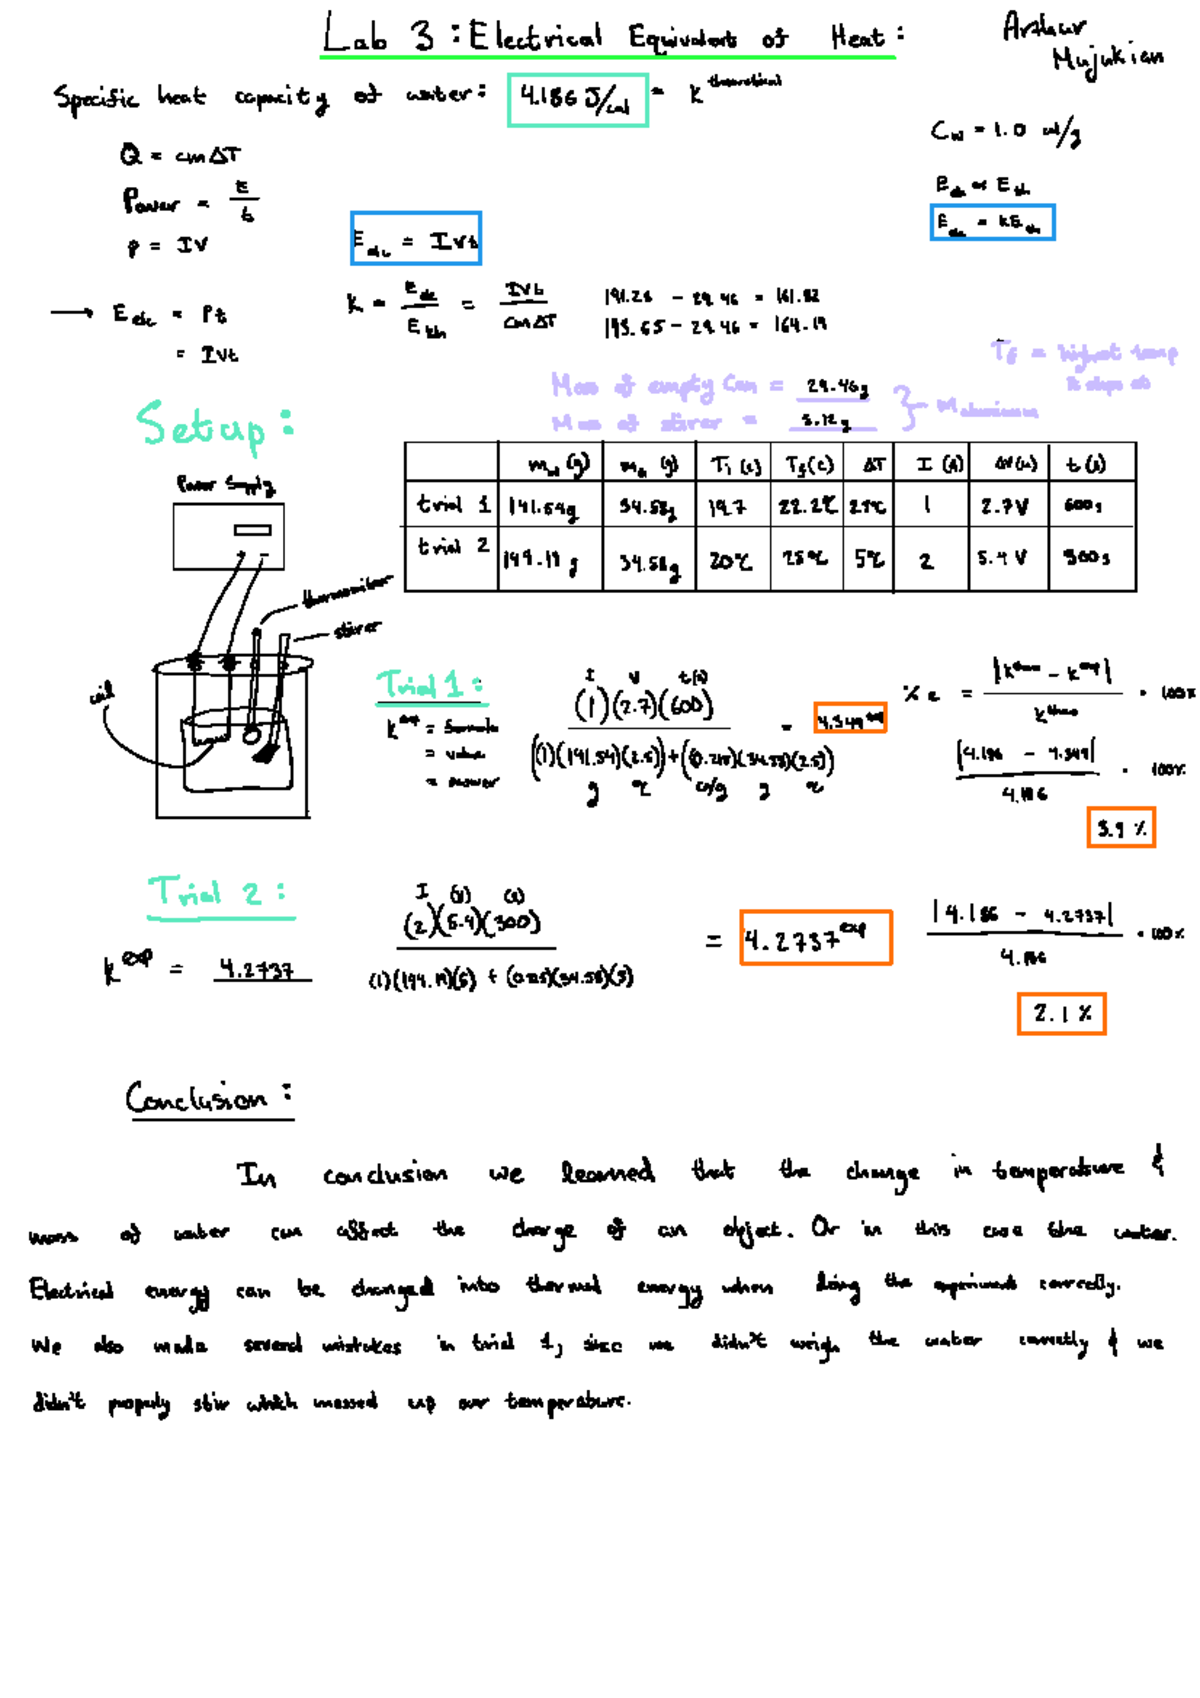 Lab 3 : Electrical Equivalent of Heat :
Arthur Mujukian
Specific heat capacity of water : 4.186 J/cal = k theoretical
Cw = 1.0 cal/g
Q = cmΔT
Power = E/t
P = IV
E elc = IVt
E elc ∝ E th
E elc = kE th
→ E elc = Pt
= IVt
k = E elc / E th = IVt / cmΔT
191.28 - 29.46 = 161.82
193.65 - 29.46 = 164.19
Tf = highest temp
it stops at
Mass of empty Can = 29.46g
Mass of stirrer = 5.12g
} M aluminum
Setup :
mw (g) ma (g) Ti (c) Tf (c) ΔT I (A) ΔV(v) t (s)
trial 1 141.54g 34.58g 19.7 22.2℃ 2.5℃ 1 2.7V 600s
trial 2 149.19g 34.58g 20℃ 25℃ 5℃ 2 5.4 V 300s
Power Supply
+ -
thermometer
stirrer
coil
Trial 1 :
k exp = formula
= value
= answer
I V t(s)
(1)(2.7)(600)
(1)(141.54)(2.5) + (0.215)(34.58)(2.5)
g ℃ cal/g g ℃
= 4.349 exp
% e = |k theo - k exp| / k theo · 100%
|4.186 - 4.349| / 4.186 · 100%
3.9 %
Trial 2 :
k exp = 4.2737
I (v) (s)
(2)(5.4)(300)
(1)(144.19)(5) + (0.215)(34.58)(5)
= 4.2737 exp
|4.186 - 4.2737| / 4.186 · 100%
2.1 %
Conclusion :
In conclusion we learned that the change in temperature &
mass of water can affect the charge of an object. Or in this case the water.
Electrical energy can be changed into thermal energy when doing the experiment correctly.
We also made several mistakes in trial 1, since we didn't weigh the water correctly & we
didn't properly stir which messed up our temperature.